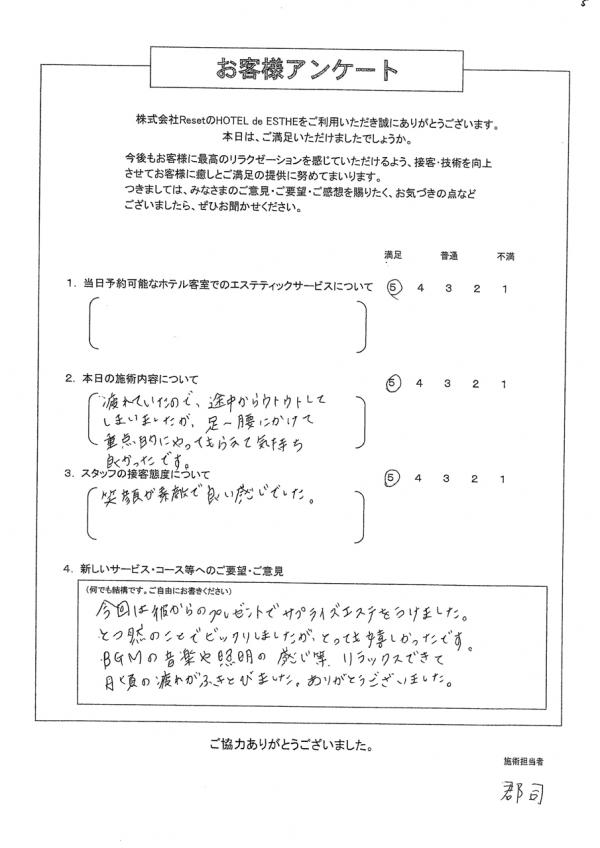 5
お客様アンケート
株式会社ResetのHOTEL de ESTHEをご利用いただき誠にありがとうございます。
本日は、ご満足いただけましたでしょうか。
今後もお客様に最高のリラクゼーションを感じていただけるよう、接客・技術を向上
させてお客様に癒しとご満足の提供に努めてまいります。
つきましては、みなさまのご意見・ご要望・ご感想を賜りたく、お気づきの点など
ございましたら、ぜひお聞かせください。
満足 普通 不満
1. 当日予約可能なホテル客室でのエステティックサービスについて 5 4 3 2 1
2. 本日の施術内容について 5 4 3 2 1
疲れていたので、途中からウトウトして
しまいましたが、足〜腰にかけて
重点的にやってもらえて気持ち
良かったです。
3. スタッフの接客態度について 5 4 3 2 1
笑顔が素敵で良い感じでした。
4. 新しいサービス・コース等へのご要望・ご意見
(何でも結構です。ご自由にお書きください)
今回は彼からのプレゼントでサプライズエステをうけました。
とつ然のことでビックリしましたが、とっても嬉しかったです。
BGMの音楽や照明の感じ等、リラックスできて
日頃の疲れがふきとびました。ありがとうございました。
ご協力ありがとうございました。
施術担当者
郡司